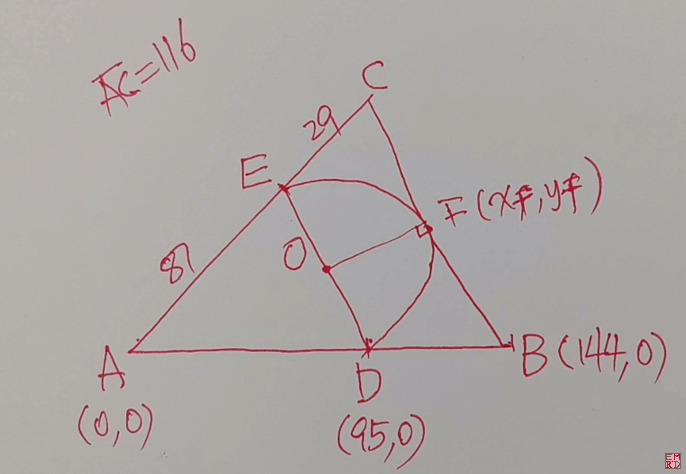 AC=116
C
29
E
F(xf,yf)
87
O
A
D
B(144,0)
(0,0)
(95,0)